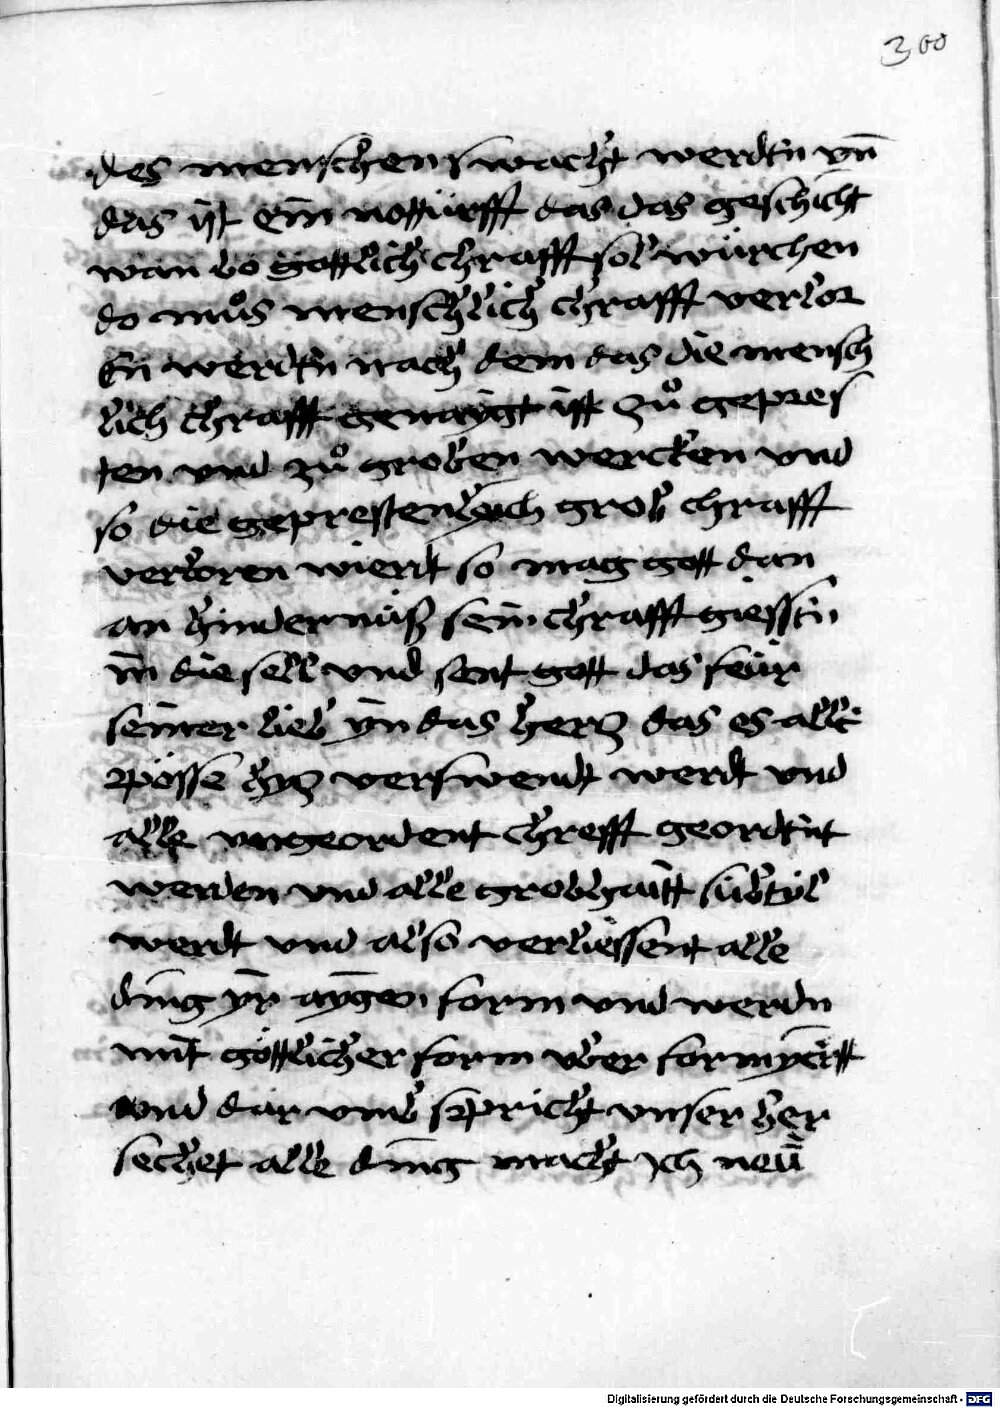 300
des menschen swacht werdn̄ vn̄
das ist ein notturfft das das geschicht
wan bo gottlich chrafft sol würchen
do můs menschlich chrafft verlor
En werdn̄ nach dem das die mensch
lich chrafft genaygt ist zů gepres
ten vnd zů groben wercken vnd
so die geprestenlich grob chrafft
verloren wierdt so mag gott dan
an hindernüß sein chrafft giessn̄
in die sell vnd sent gott das feür
seiner lieb yn das hercz das es alle
pösse hycz verswendt werdt vnd
alle vngeordent chrefft geordn̄t
werden vnd alle grobhaitt subtyl
werdt vnd also verliessent alle
ding yr aygen form vnd werdn
mit göttlicher form vber formyertt
vnd dar vmb spricht vnser her
sechet alle ding mach ych neü
Digitalisierung gefördert durch die Deutsche Forschungsgemeinschaft - DFG